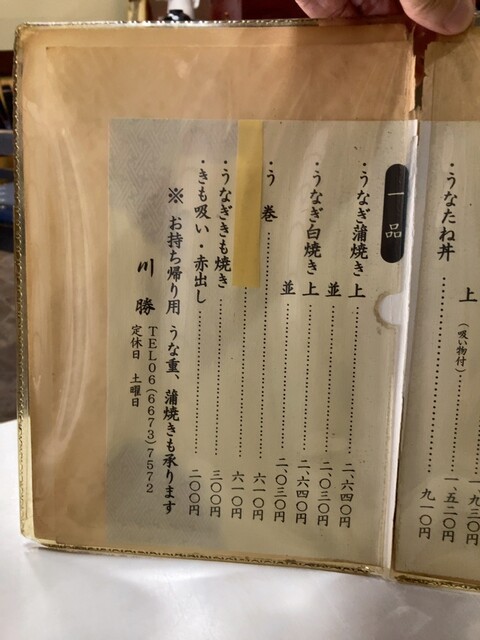 上 一、九三〇円
（吸い物付） 一、五二〇円
・うなたね丼 九一〇円
一品
・うなぎ蒲焼き 上 二、六四〇円
並 二、〇三〇円
・うなぎ白焼き 上 二、六四〇円
並 二、〇三〇円
・う巻 六一〇円
六一〇円
・うなぎきも焼き 三〇〇円
・きも吸い・赤出し 二〇〇円
※ お持ち帰り用 うな重、蒲焼きも承ります
川勝 TEL06(6673)7572
定休日 土曜日